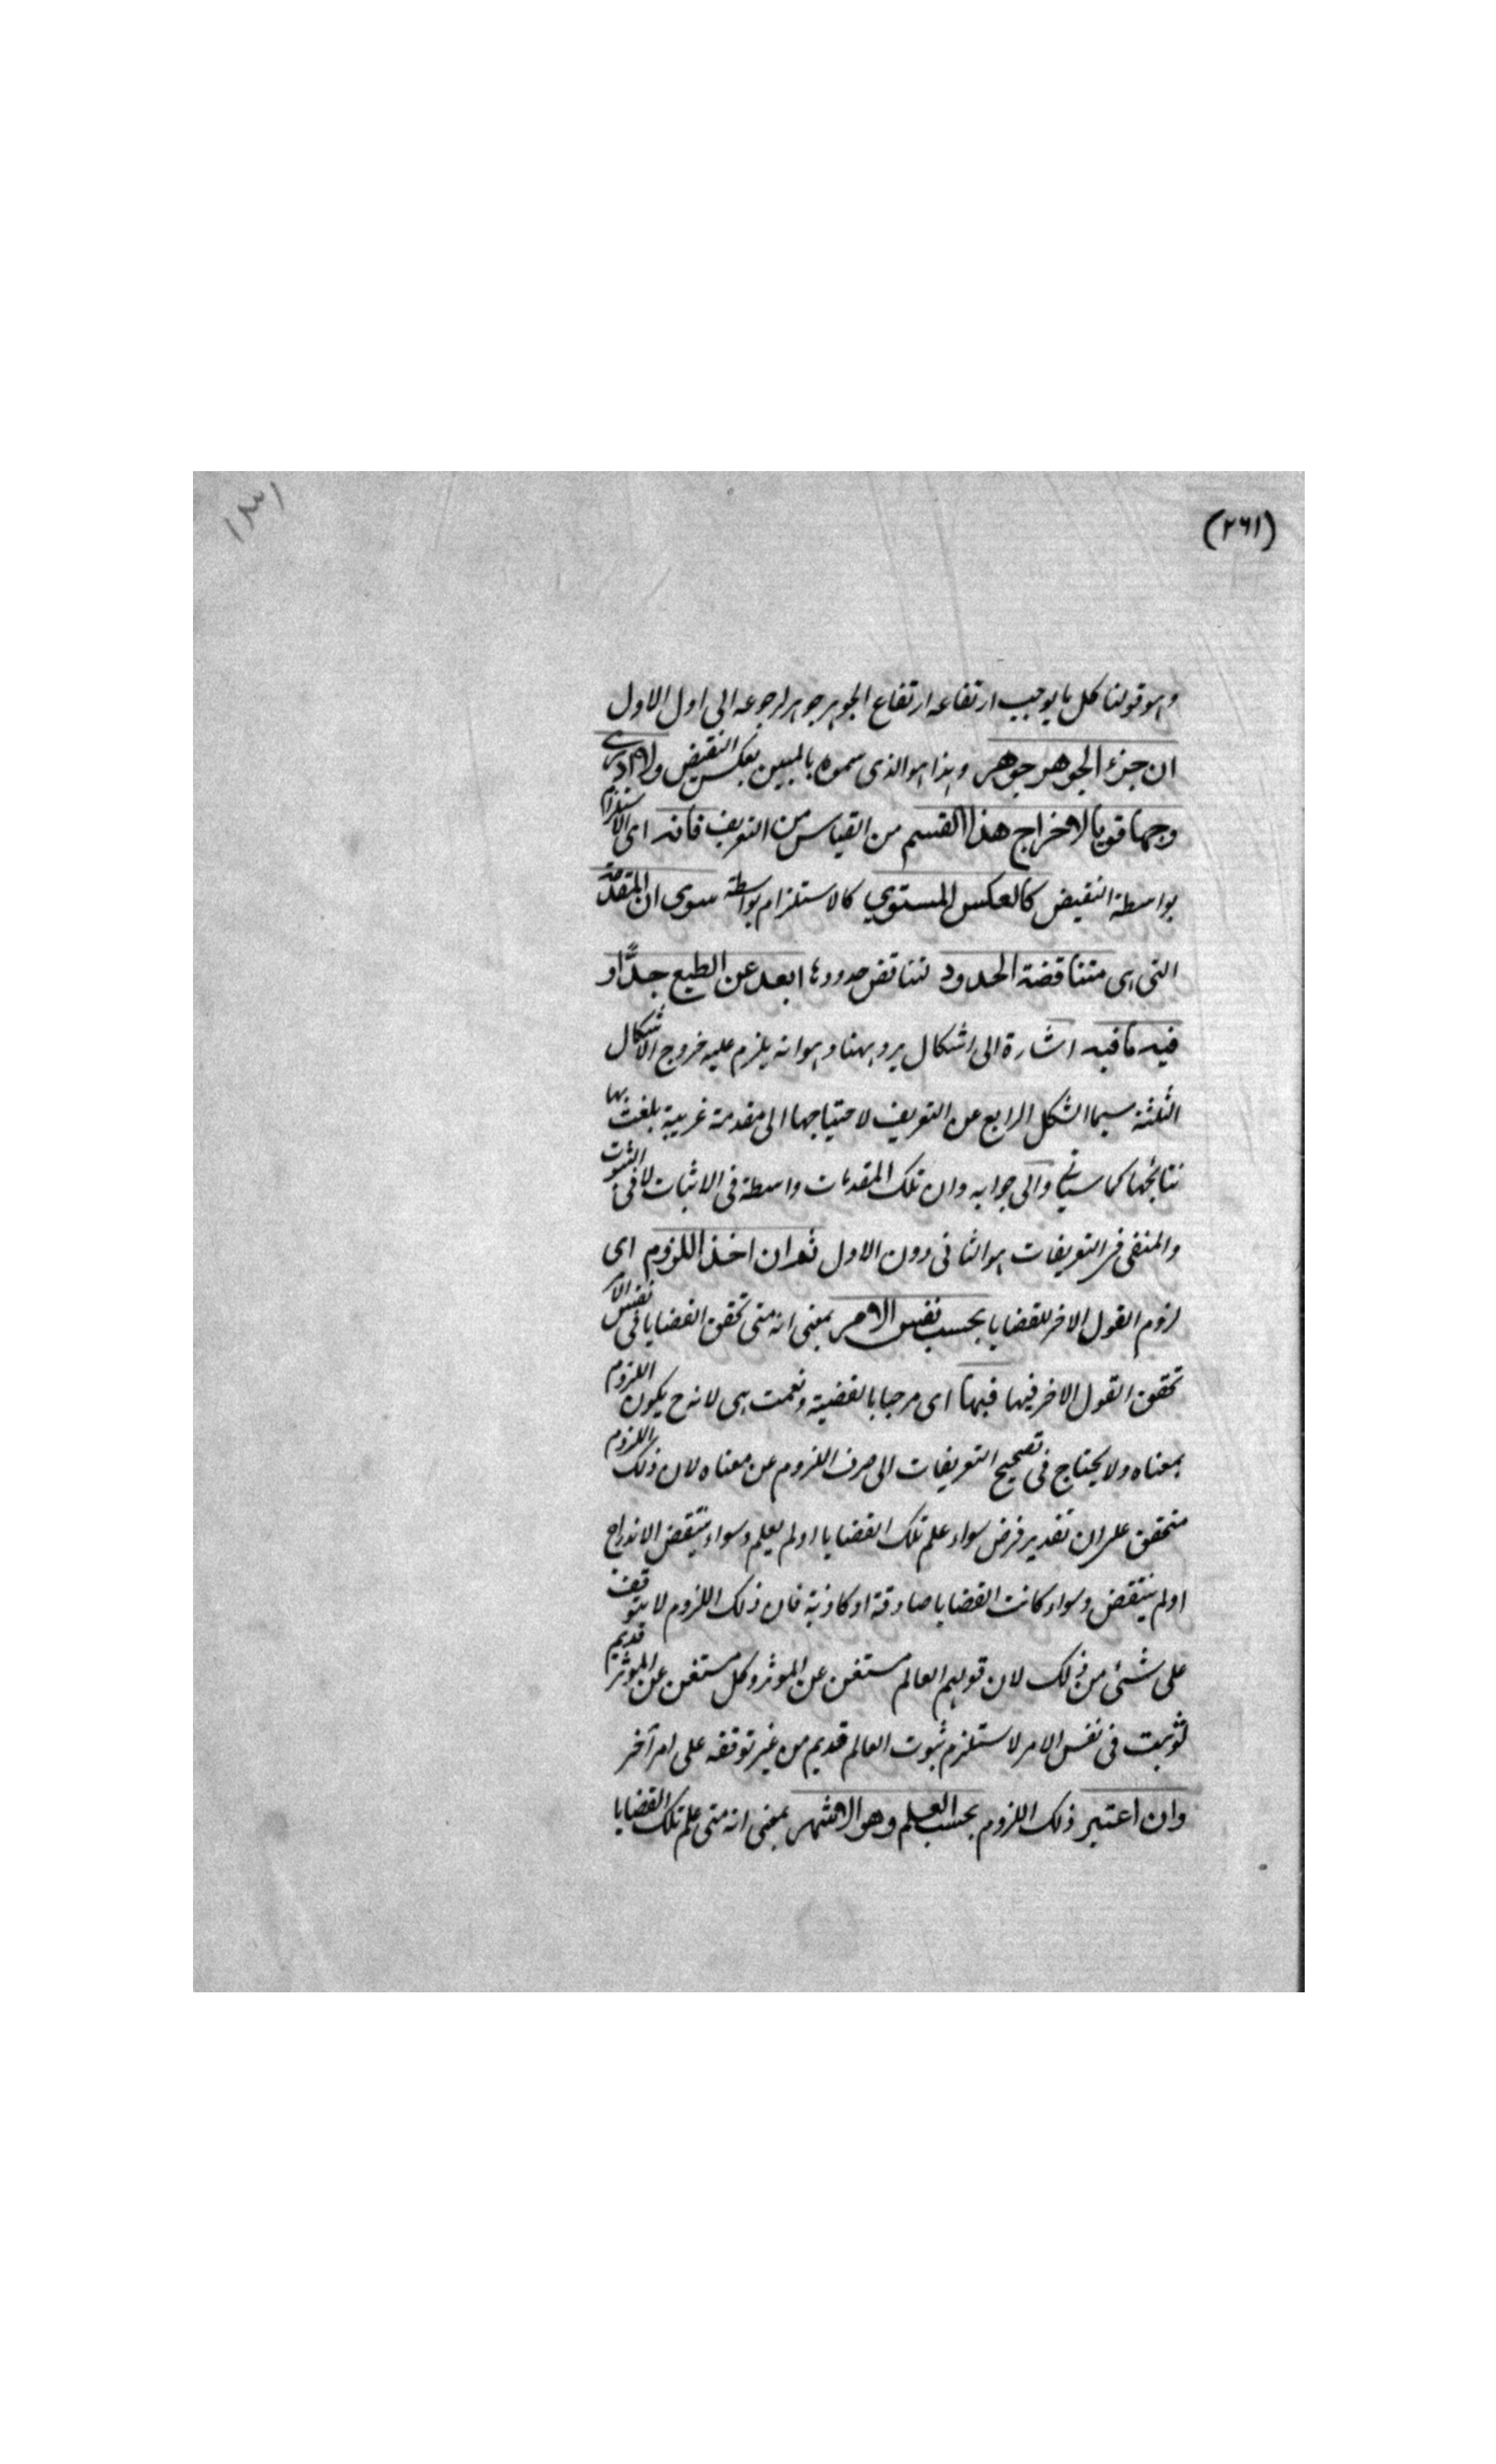 (٢٦١)
١٣١
وهو قولنا كل ما يوجب ارتفاعه ارتفاع الجوهر جوهر لرجوعه الى اول الاول
ان جزء الجوهر جوهر وهذا هو الذى سموه بالمبين بعكس النقيض ولا ادرى
وجها قويا لاخراج هذا القسم من القياس من التعريف فانه اى الاستلزام
بواسطة النقيض كالعكس المستوي كالاستلزام بواسطة سوى ان المقدمة
التى هى متناقضة الحدود لتناقض حدودها ابعد عن الطبع جدًّا و
فيه ما فيه اشارة الى اشكال يرد ههنا وهو انه يلزم عليه خروج الاشكال
الثلثة سيما الشكل الرابع عن التعريف لاحتياجها الى مقدمة غريبة بلغت بها
نتائجها كما سياتى والى جوابه وان تلك المقدمات واسطة فى الاثبات لا فى الثبوت
والمنفى فى التعريفات هو الثانى دون الاول ثم ان اخذ اللزوم اى
لزوم القول الاخر للقضايا بحسب نفس الامر بمعنى انه متى تحقق القضايا فى نفس الامر
تحقق القول الاخر فيها فبها اى مرحبا بالقضية ونعمت هى لانه ح يكون اللزوم
بمعناه ولا يحتاج فى تصحيح التعريفات الى صرف اللزوم عن معناه لان ذلك اللزوم
متحقق على ان تقدير فرض سواء علم تلك القضايا او لم يعلم وسواء ينتقض الاندراج
او لم ينتقض وسواء كانت القضايا صادقة او كاذبة فان ذلك اللزوم لا يتوقف
على شئ من ذلك لان قولهم العالم مستغن عن الموثر وكل مستغن عن الموثر قديم
لو ثبت فى نفس الامر لاستلزم ثبوت العالم قديم من غير توقفه على امر آخر
وان اعتبر ذلك اللزوم بحسب العلم وهو الاشهر بمعنى انه متى علم تلك القضايا